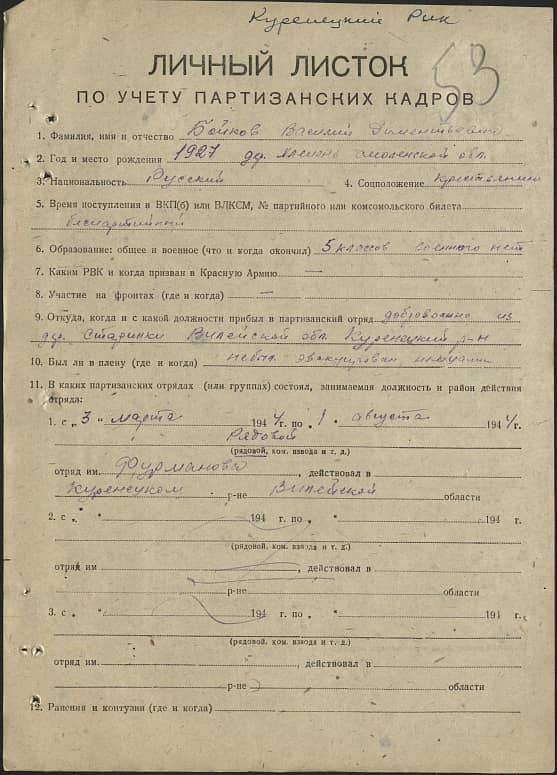 Куренецкий Рик
53
ЛИЧНЫЙ ЛИСТОК
ПО УЧЕТУ ПАРТИЗАНСКИХ КАДРОВ
1. Фамилия, имя и отчество Бойков Василий
2. Год и место рождения 1927 др. Смоленской обл.
3. Национальность Русский 4. Соцположение крестьянин
5. Время поступления в ВКП(б) или ВЛКСМ, № партийного или комсомольского билета
беспартийный
6. Образование: общее и военное (что и когда окончил) 5 классов военного нет
7. Каким РВК и когда призван в Красную Армию —
8. Участие на фронтах (где и когда) —
9. Откуда, когда и с какой должности прибыл в партизанский отряд добровольно из
др. Стадинки Вилейской обл. Куренецкий р-н
10. Был ли в плену (где и когда) небыл эвакуирован немцами
11. В каких партизанских отрядах (или группах) состоял, занимаемая должность и район действия
отряда:
1. с „ 3 " марта 194 4 г. по „ 1 " августа 194 4 г.
Рядовой
(рядовой, ком. взвода и т. д.)
отряд им. Фурманова, действовал в
Куренецком р-не Вилейской области
2. с „ " 194 г. по „ " 194 г.
(рядовой, ком. взвода и т. д.)
отряд им , действовал в
р-не области
3. с „ " 194 г. по „ " 194 г.
(рядовой, ком. взвода и т. д.)
отряд им. , действовал в
р-не области
12. Ранения и контузии (где и когда)